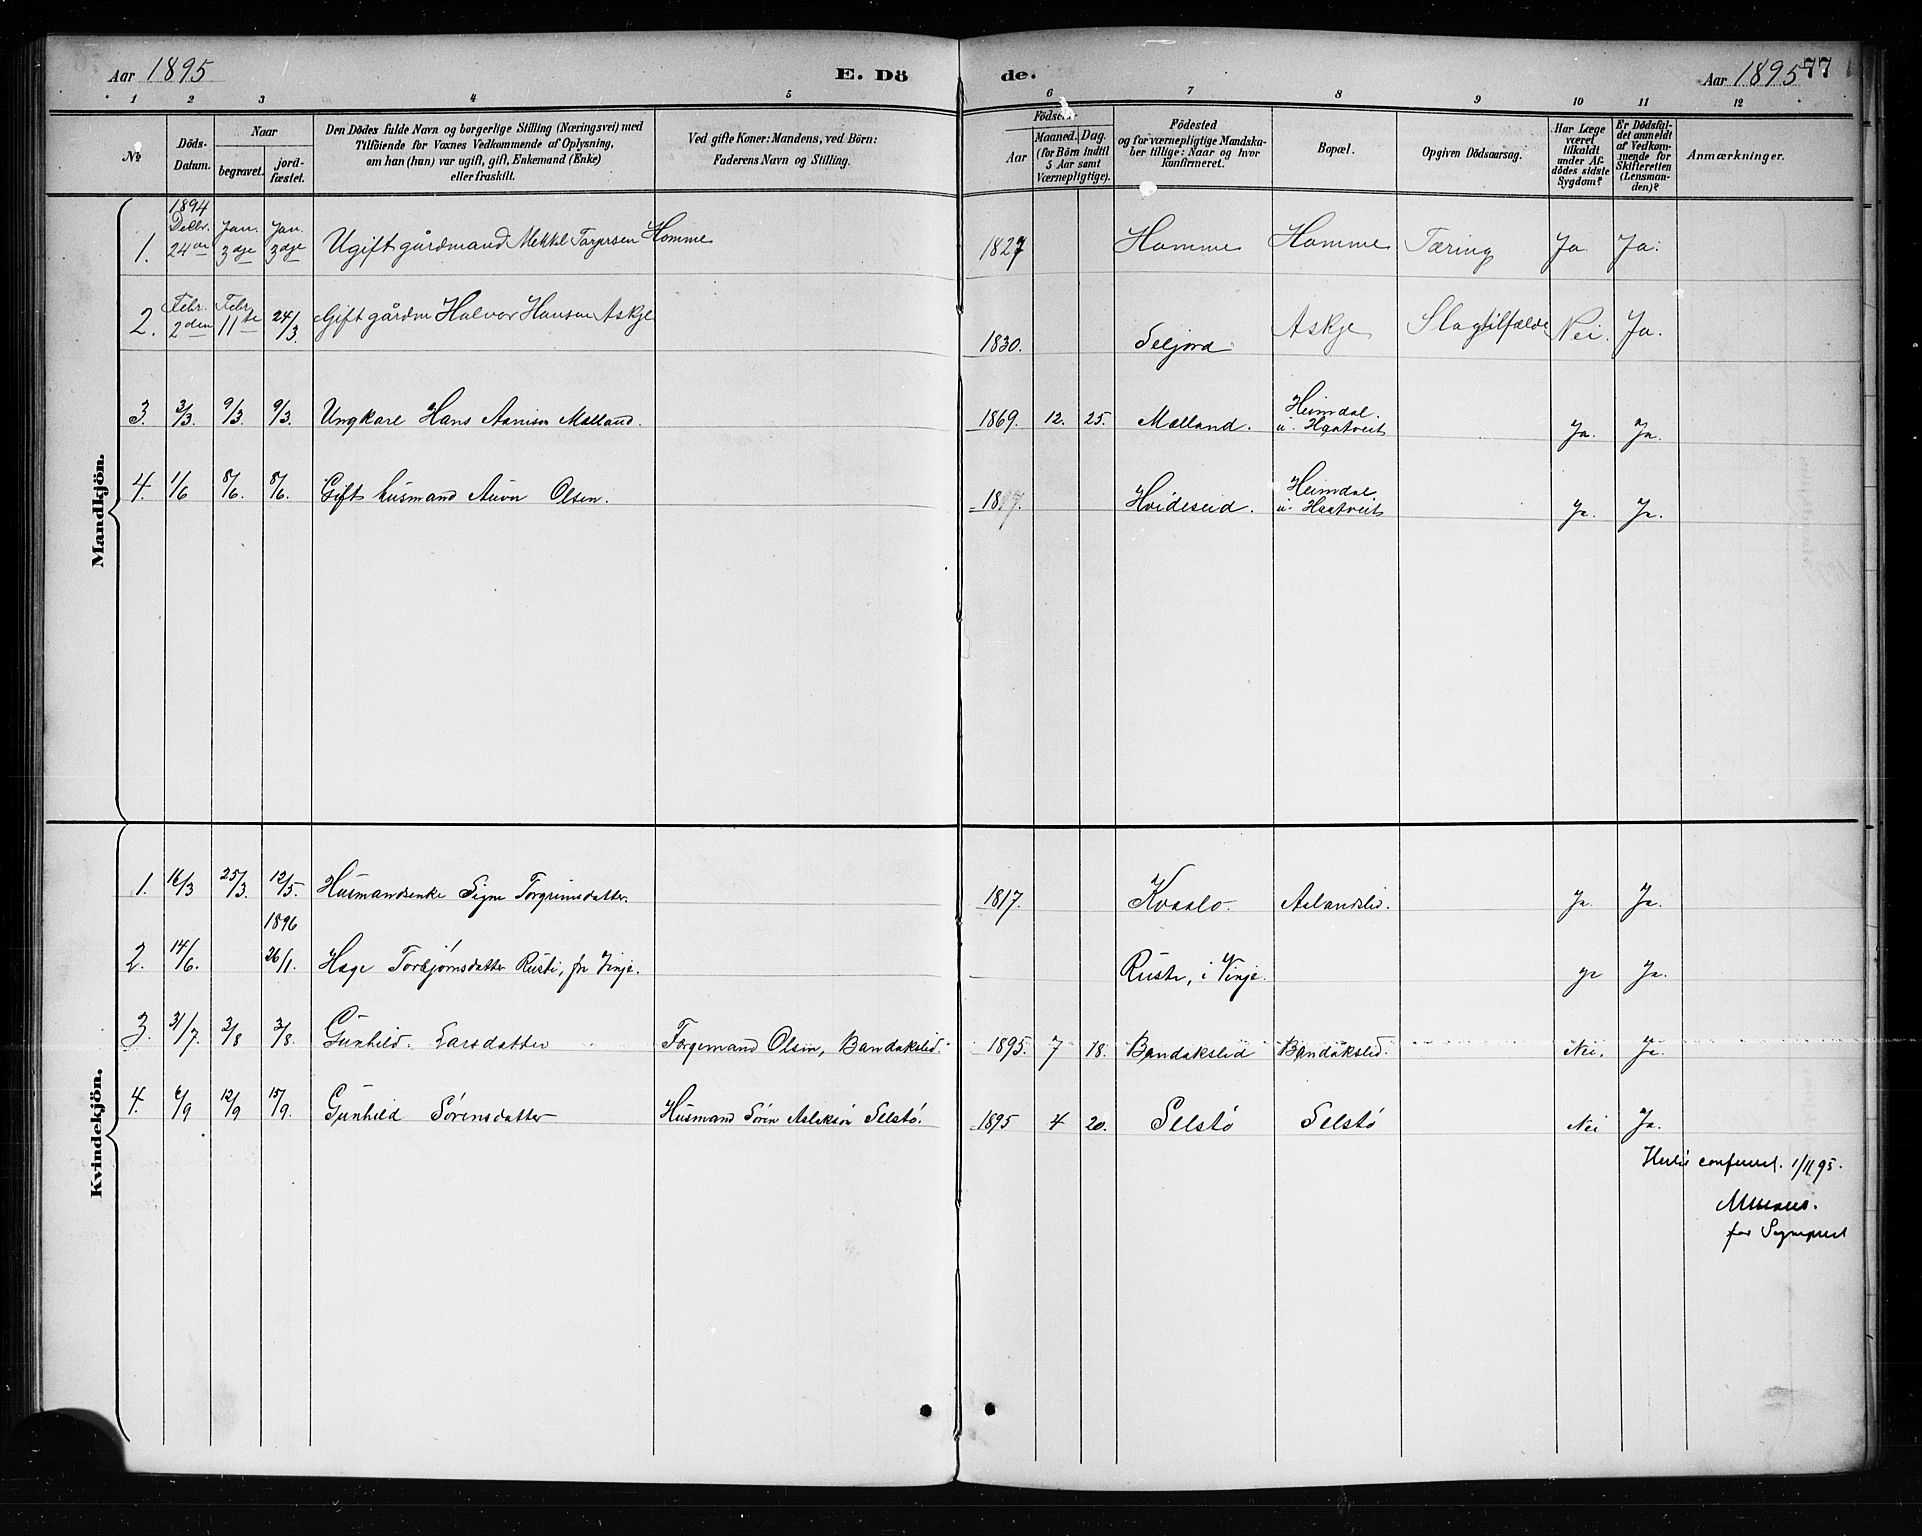 Aar 1895 E. Dö de. Aar 1895 77
1 2 3 4 5 6 7 8 9 10 11 12
No
Döds-Datum.
Naar
begravet.
jord-fæstet.
Den Dödes fulde Navn og borgerlige Stilling (Næringsvei) med
Tilföiende for Voxnes Vedkommende af Oplysning,
om han (hun) var ugift, gift, Enkemand (Enke)
eller fraskilt.
Ved gifte Koner: Mandens, ved Börn:
Faderens Navn og Stilling.
Aar
Maaned. Dag.
(for Börn indtil
5 Aar samt
Værnepligtige).
Födested
og for værnepligtige Mandska-
ber tillige: Naar og hvor
konfirmeret.
Bopæl.
Opgiven Dödsaarsag.
Har Læge
været
tilkaldt
under Af-
dödes sidste
Sygdom?
Er Dödsfal-
det anmeldt
af Vedkom-
mende for
Skifteretten
(Lensman-
den)?
Anmærkninger.
Mandkjön.
1. 1894 Decbr. 24de Jan. 3dje Jan. 3dje Ugift gårdmand Mekkel Tarjersen Homme 1827 Homme Homme Tæring Ja Ja.
2. Febr. 2den Febr. 11te 24/3 Gift gårdm Halvor Hansen Askje 1830. Seljord Askje Slagtilfælde Nei. Ja.
3. 3/3 9/3. 9/3. Ungkarl Hans Mælland. 1869. 12. 25. Mælland. Heimdal u. Haatveit Ja. Ja.
4. 1/6 8/6. 8/6. Gift husmand Olsen. Hvideseid. Heimdal u. Haatveit Ja. Ja.
Kvindekjön.
1. 16/3 25/3. 12/5. Husmandsenke Signe Torgrimsdatter. 1817. Kvaalo. Aslandslid. Ja Ja.
2. 14/6. 1896 26/1. Hæge Torbjørnsdatter Rusti, fra Vinje. Ruste, i Vinje. ja Ja.
3. 31/7. 3/8 3/8. Gunhild Larsdatter Olsen, Bandakslid. 1895. 7 18. Bandakslid Bandakslid. Nei. Ja.
4. 6/9 12/9 15/9. Gunhild Sørensdatter Husmand Sören Aslaksön Selstø. 1895 4 20. Selstø Selstø Nei Ja.
confereret. 1/11 95.
for Sogneprest